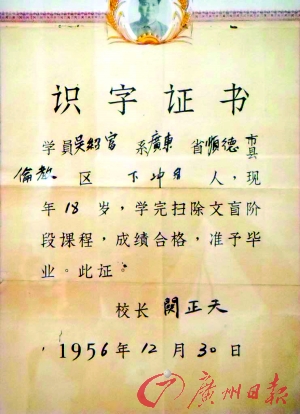 识字证书
学員吴绍官系廣東省順德市县
倫教区下冲乡人,现
年18岁,学完扫除文盲阶
段课程,成绩合格,准予毕
业。此证。
校长 関正天
1956年12月30日
廣州日报